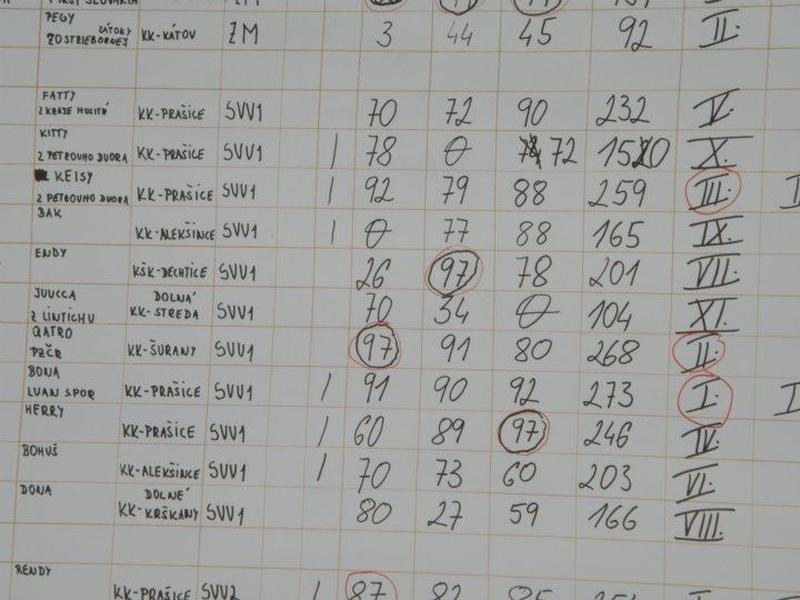 PEGY
ZÁTOKY
ZO STRIEBORNEJ KK-KÁTOV ZM 3 44 45 92 II.
FATTY
Z KRAJE HUSITŮ KK-PRAŠICE SVV1 70 72 90 232 V.
KITTY
Z PETROVHO DVORA KK-PRAŠICE SVV1 1 78 0 72 150 X.
KEISY
Z PETROVHO DVORA KK-PRAŠICE SVV1 1 92 79 88 259 III.
BAK
KK-ALEKŠINCE SVV1 1 0 77 88 165 IX.
ENDY
KŠK-DECHTICE SVV1 26 97 78 201 VII.
JUUCCA DOLNÁ
Z LINTICHU KK-STREDA SVV1 70 34 0 104 XI.
QATRO
PZČR KK-ŠURANY SVV1 97 91 80 268 II.
BONA
LUAN SPOR KK-PRAŠICE SVV1 1 91 90 92 273 I.
HERRY
KK-PRAŠICE SVV1 1 60 89 97 246 IV.
BOHUŠ
KK-ALEKŠINCE SVV1 1 70 73 60 203 VI.
DONA DOLNÉ
KK-KRŠKANY SVV1 80 27 59 166 VIII.
RENDY
KK-PRAŠICE SVV2 1 87 82